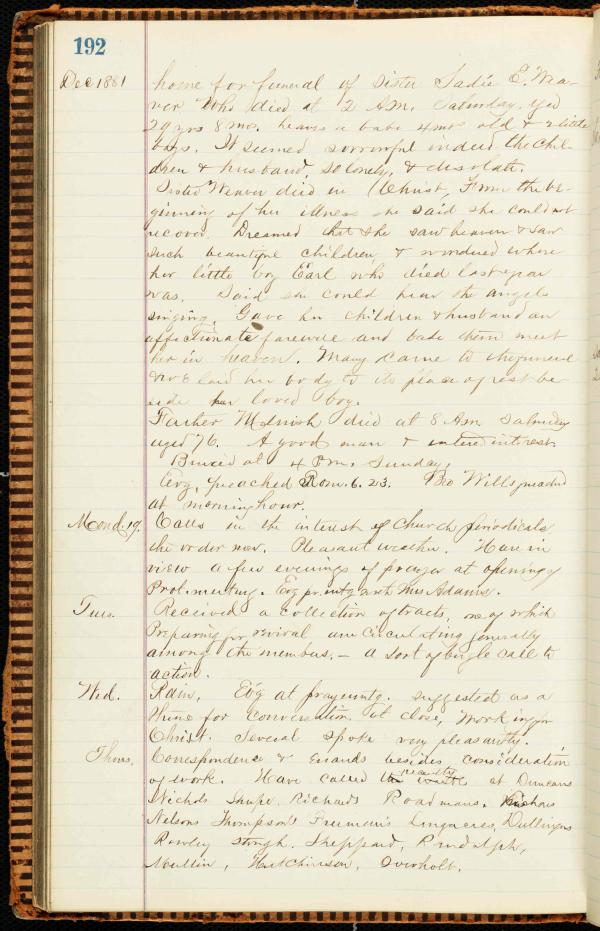 192
Dec 1881 home for funeral of Sister Sadie E. Wea-
ver who died at 2 A.M. Saturday. aged
29 yrs 8 mos. leaves a babe 4 mos old & 2 little
boys. It seemed sorrowful indeed the chil-
dren & husband, so lonely, & desolate.
Sister Weaver died in Christ, From the be-
ginning of her illness she said she could not
recover. Dreamed that she saw heaven & saw
such beautiful children, & wondered where
her little boy Earl who died last year
was. Said she could hear the angels
singing. Gave her children & husband an
affectionate farewell and bade them meet
her in heaven. Many came to the funeral
& we laid her body to its place of rest be-
side her loved boy.
Father died at 8 A.M. Saturday
aged 76. A good man & interest.
Buried at 4 P.M. Sunday.
Evg. preached Rom. 6. 23. Bro Wills preached
at morning hour.
Mond. 19. Calls in the interest of Church periodicals
the order now. Pleasant weather. Have in
view a few evenings of prayer at opening of
Prot. meeting. Evg pr. mtg with Mrs Adams.
Tues. Received a collection of tracts, one of which
Preparing for revival am circulating generally
among the members, — a sort of bugle call to
action.
Wed. Rain, Evg at prayer mtg. suggested as a
theme for conversation at close, Working for
Christ. Several spoke very pleasantly.
Thurs. Correspondence & Errands besides consideration
of work. Have called recently at Duncans
Nichols Shupe, Richards Roadmans,
Nelsons Thompsons Freemans
Rowley Sheppard, Rundolph,
Mullin, Hutchinson, Overholt.